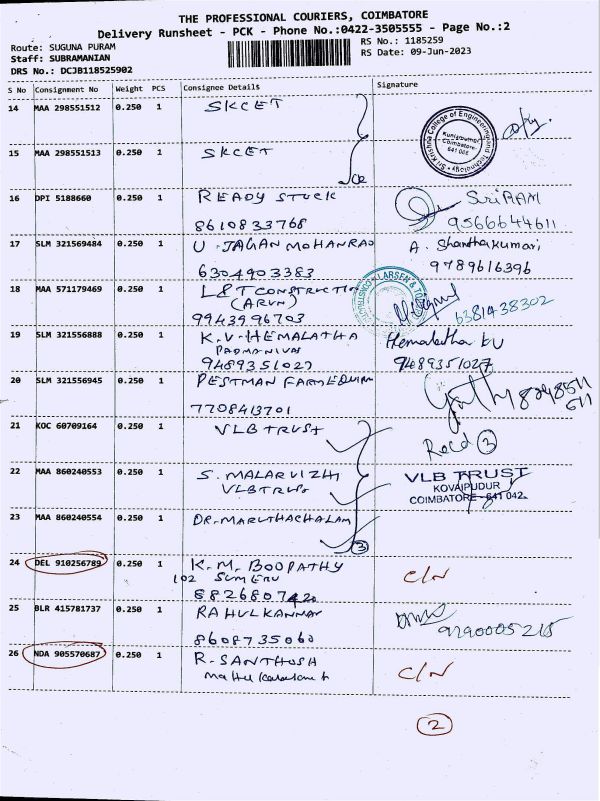 THE PROFESSIONAL COURIERS, COIMBATORE
Delivery Runsheet - PCK - Phone No.:0422-3505555 - Page No.:2
Route: SUGUNA PURAM
RS No.: 1185259
Staff: SUBRAMANIAN
RS Date: 09-Jun-2023
DRS No.: DCJB118525902
S No Consignment No Weight PCS Consignee Details Signature
14 MAA 298551512 0.250 1 SKCET
Sri Krishna College of Engineering and Technology
Kuniamuthur Coimbatore 641 008
15 MAA 298551513 0.250 1 SKCET
16 DPI 5188660 0.250 1 READY STUCK SriRAM
8610833768 9566644611
17 SLM 321569484 0.250 1 U. JAGAN MOHANRAO A. Shanthakumari
6304903383 9789616396
18 MAA 571179469 0.250 1 L&T CONSTRUCTION LARSEN & TO
(ARUN) 6381438302
9943996703
19 SLM 321556888 0.250 1 K.V.HEMALATHA Hemalatha KV
PADMANIVAS
9489351027 9489351027
20 SLM 321556945 0.250 1 PESTMAN FARMEQUIP 8248511
611
7708413701
21 KOC 60709164 0.250 1 VLB TRUST
Recd 3
22 MAA 860240553 0.250 1 S. MALARVIZHI VLB TRUST
VLB TRUST KOVAIPUDUR
COIMBATORE - 641 042.
23 MAA 860240554 0.250 1 DR. MARUTHACHALAM
3
24 DEL 910256789 0.250 1 K.M. BOOPATHY C/N
102 SUMERU
8826807420
25 BLR 415781737 0.250 1 RAHULKANNAN
8608735060 9290005215
26 NDA 905570687 0.250 1 R. SANTHOSH C/N
2